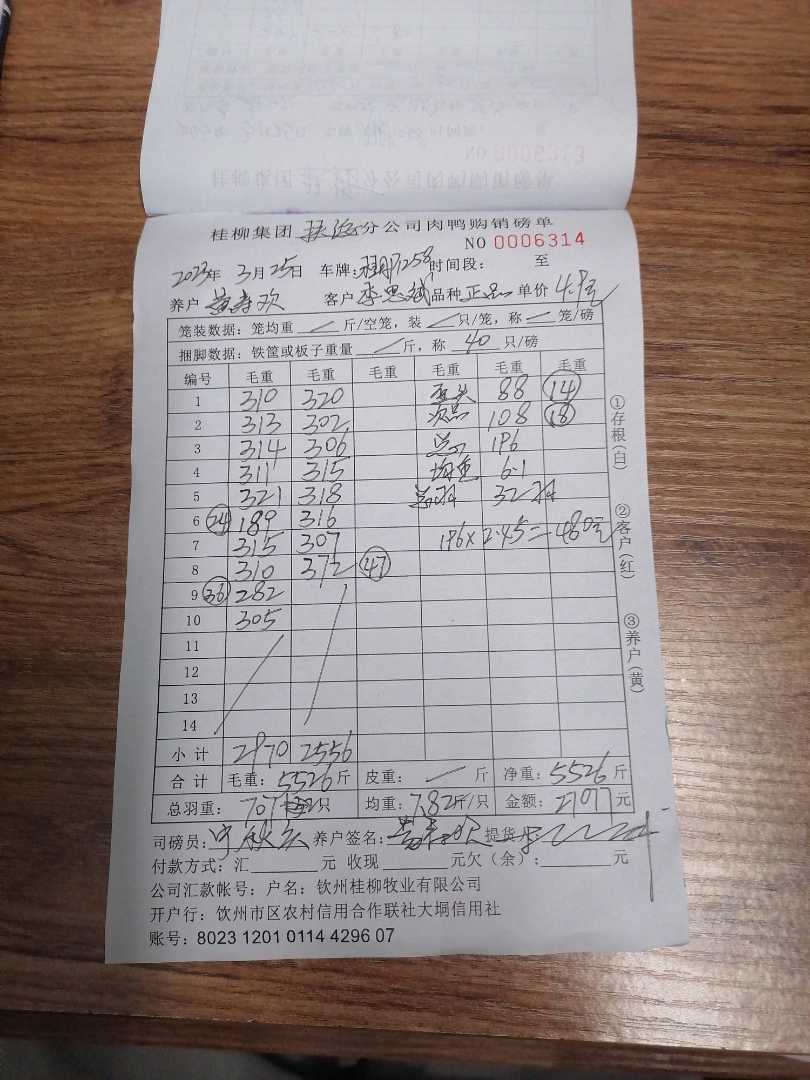 桂柳集团 扶 分公司肉鸭购销磅单
NO 0006314
2023年 3月25日 车牌: 7258 时间段: 至
养户 黄寿欢 客户 李思斌 品种 正品 单价 4.9元
笼装数据: 笼均重 ／ 斤/空笼, 装 ／ 只/笼, 称 ／ 笼/磅
捆脚数据: 铁筐或板子重量 ／ 斤, 称 40 只/磅
编号 毛重 毛重 毛重 毛重 毛重 毛重
1 310 320 88 14
2 313 302 次品 108 18
3 314 306 总 196
4 311 315 均重 6.1
5 321 318 总羽 32羽
6 24 189 316
7 315 307 196×2.45=480元
8 310 372 47
9 36 282
10 305
11
12
13
14
小计 2970 2556
合计 毛重: 5526 斤 皮重: ／ 斤 净重: 5526 斤
总羽重: 707 只 均重: 7.82 斤/只 金额: 27077 元
司磅员: 养户签名: 黄寿欢 提货
付款方式: 汇 元 收现 元欠(余): 元
公司汇款帐号: 户名: 钦州桂柳牧业有限公司
开户行: 钦州市区农村信用合作联社大垌信用社
账号: 8023 1201 0114 4296 07
①存根(白)
②客户(红)
③养户(黄)